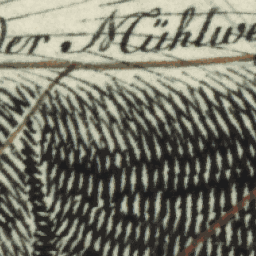 der Mühlwe